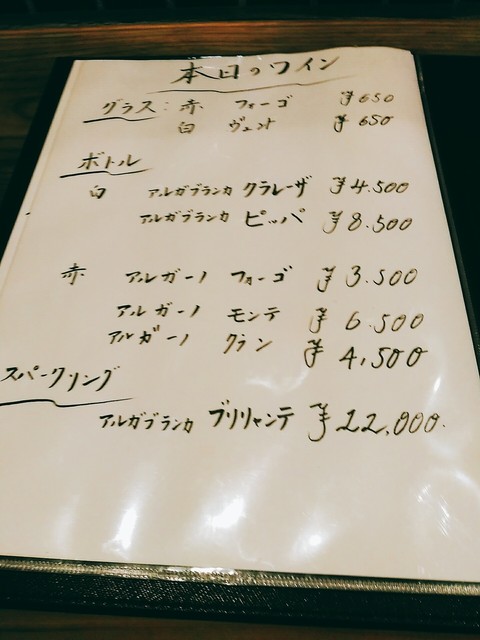 本日のワイン
グラス: 赤 フォーゴ ¥650
白 ヴェント ¥650
ボトル
白 アルガブランカ クラレーザ ¥4.500
アルガブランカ ピッパ ¥8.500
赤 アルガーノ フォーゴ ¥3.500
アルガーノ モンテ ¥6.500
アルガーノ クラン ¥4,500
スパークリング
アルガブランカ ブリリャンテ ¥22,000.